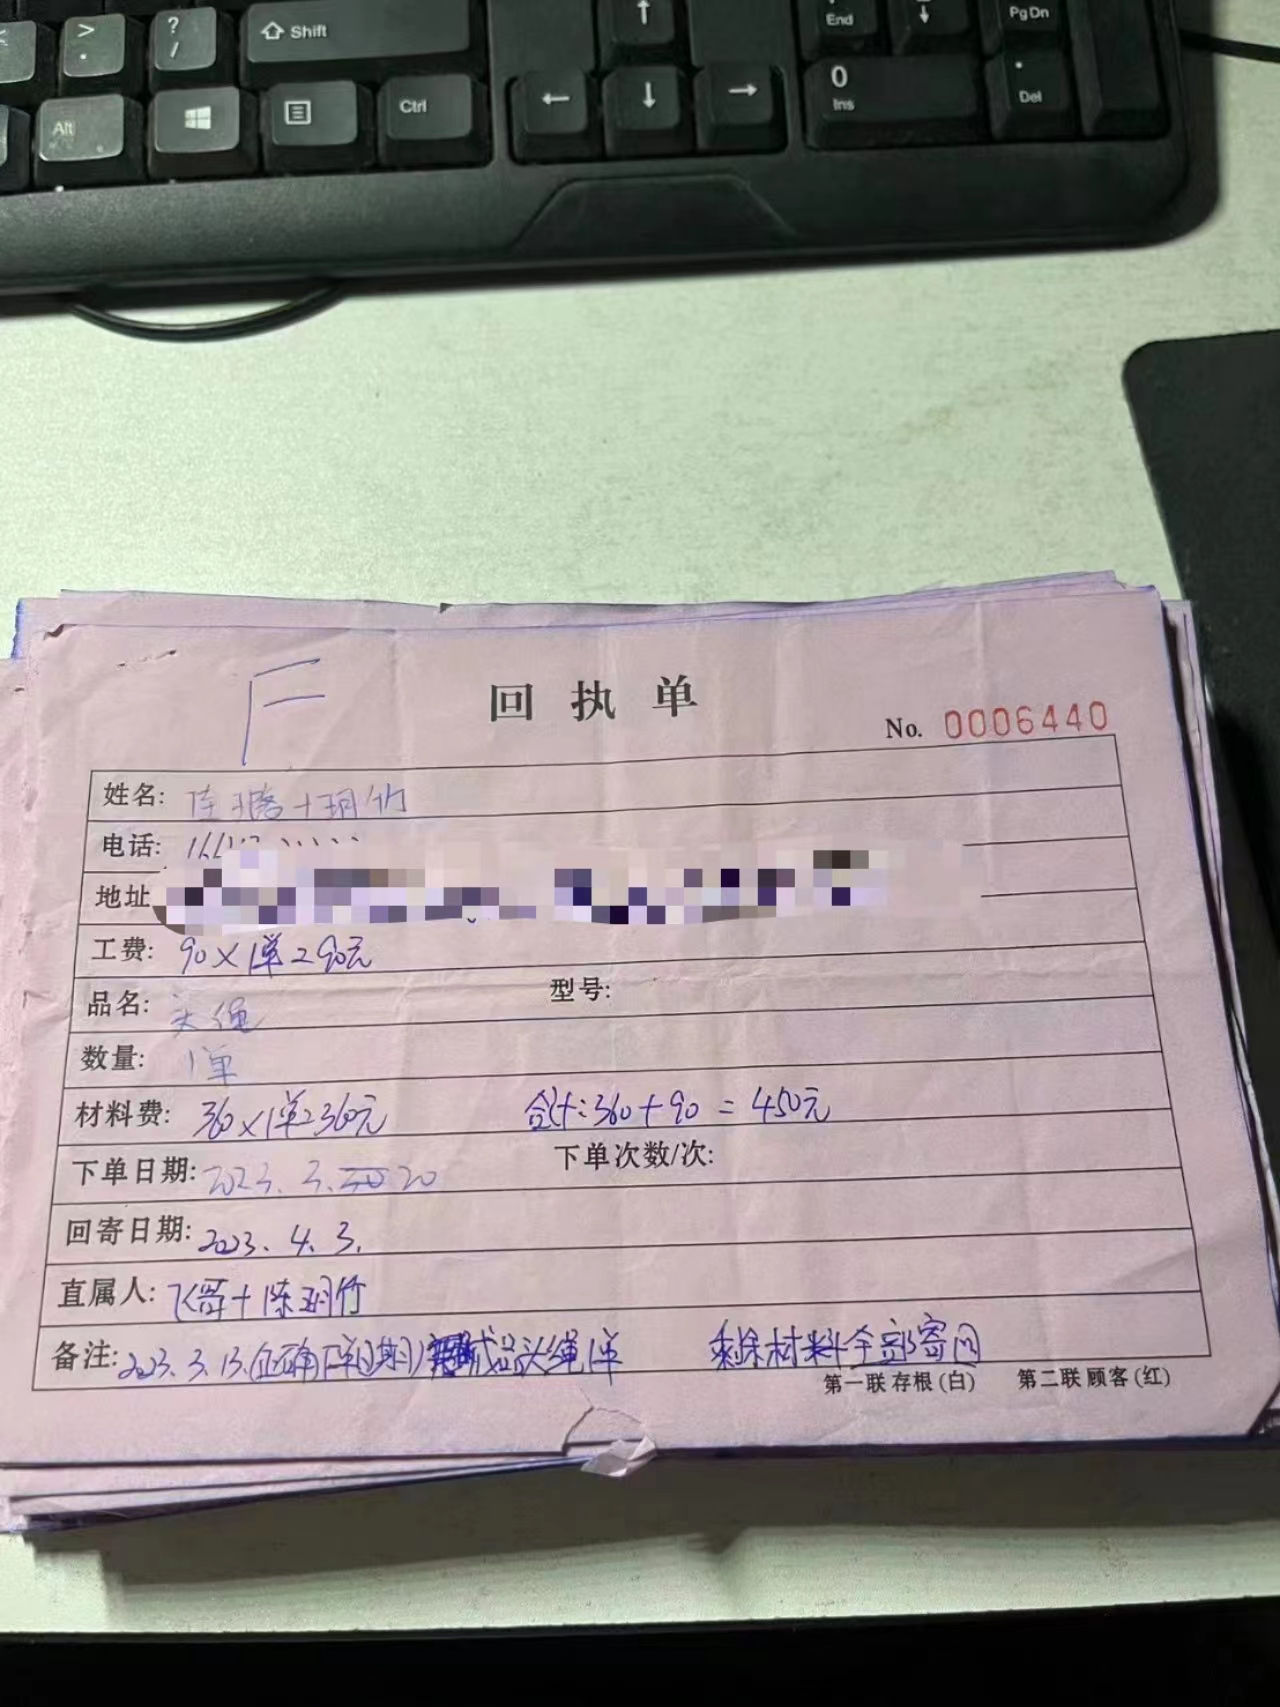 >
.
?
/
Shift
End
PgDn
Alt
Ctrl
0
Ins
.
Del
F
回执单
No. 0006440
姓名:
电话:
地址
工费: 90×1单=90元
品名: 头绳 型号:
数量: 1单
材料费: 360×1单=360元 合计:360+90=450元
下单日期: 2023.3.20 下单次数/次:
回寄日期: 2023.4.3.
直属人: 飞哥+陈玥竹
备注: 2023.3.13.(正确下单日期) 成品头绳1单 剩余材料全部寄回
第一联 存根(白) 第二联 顾客(红)